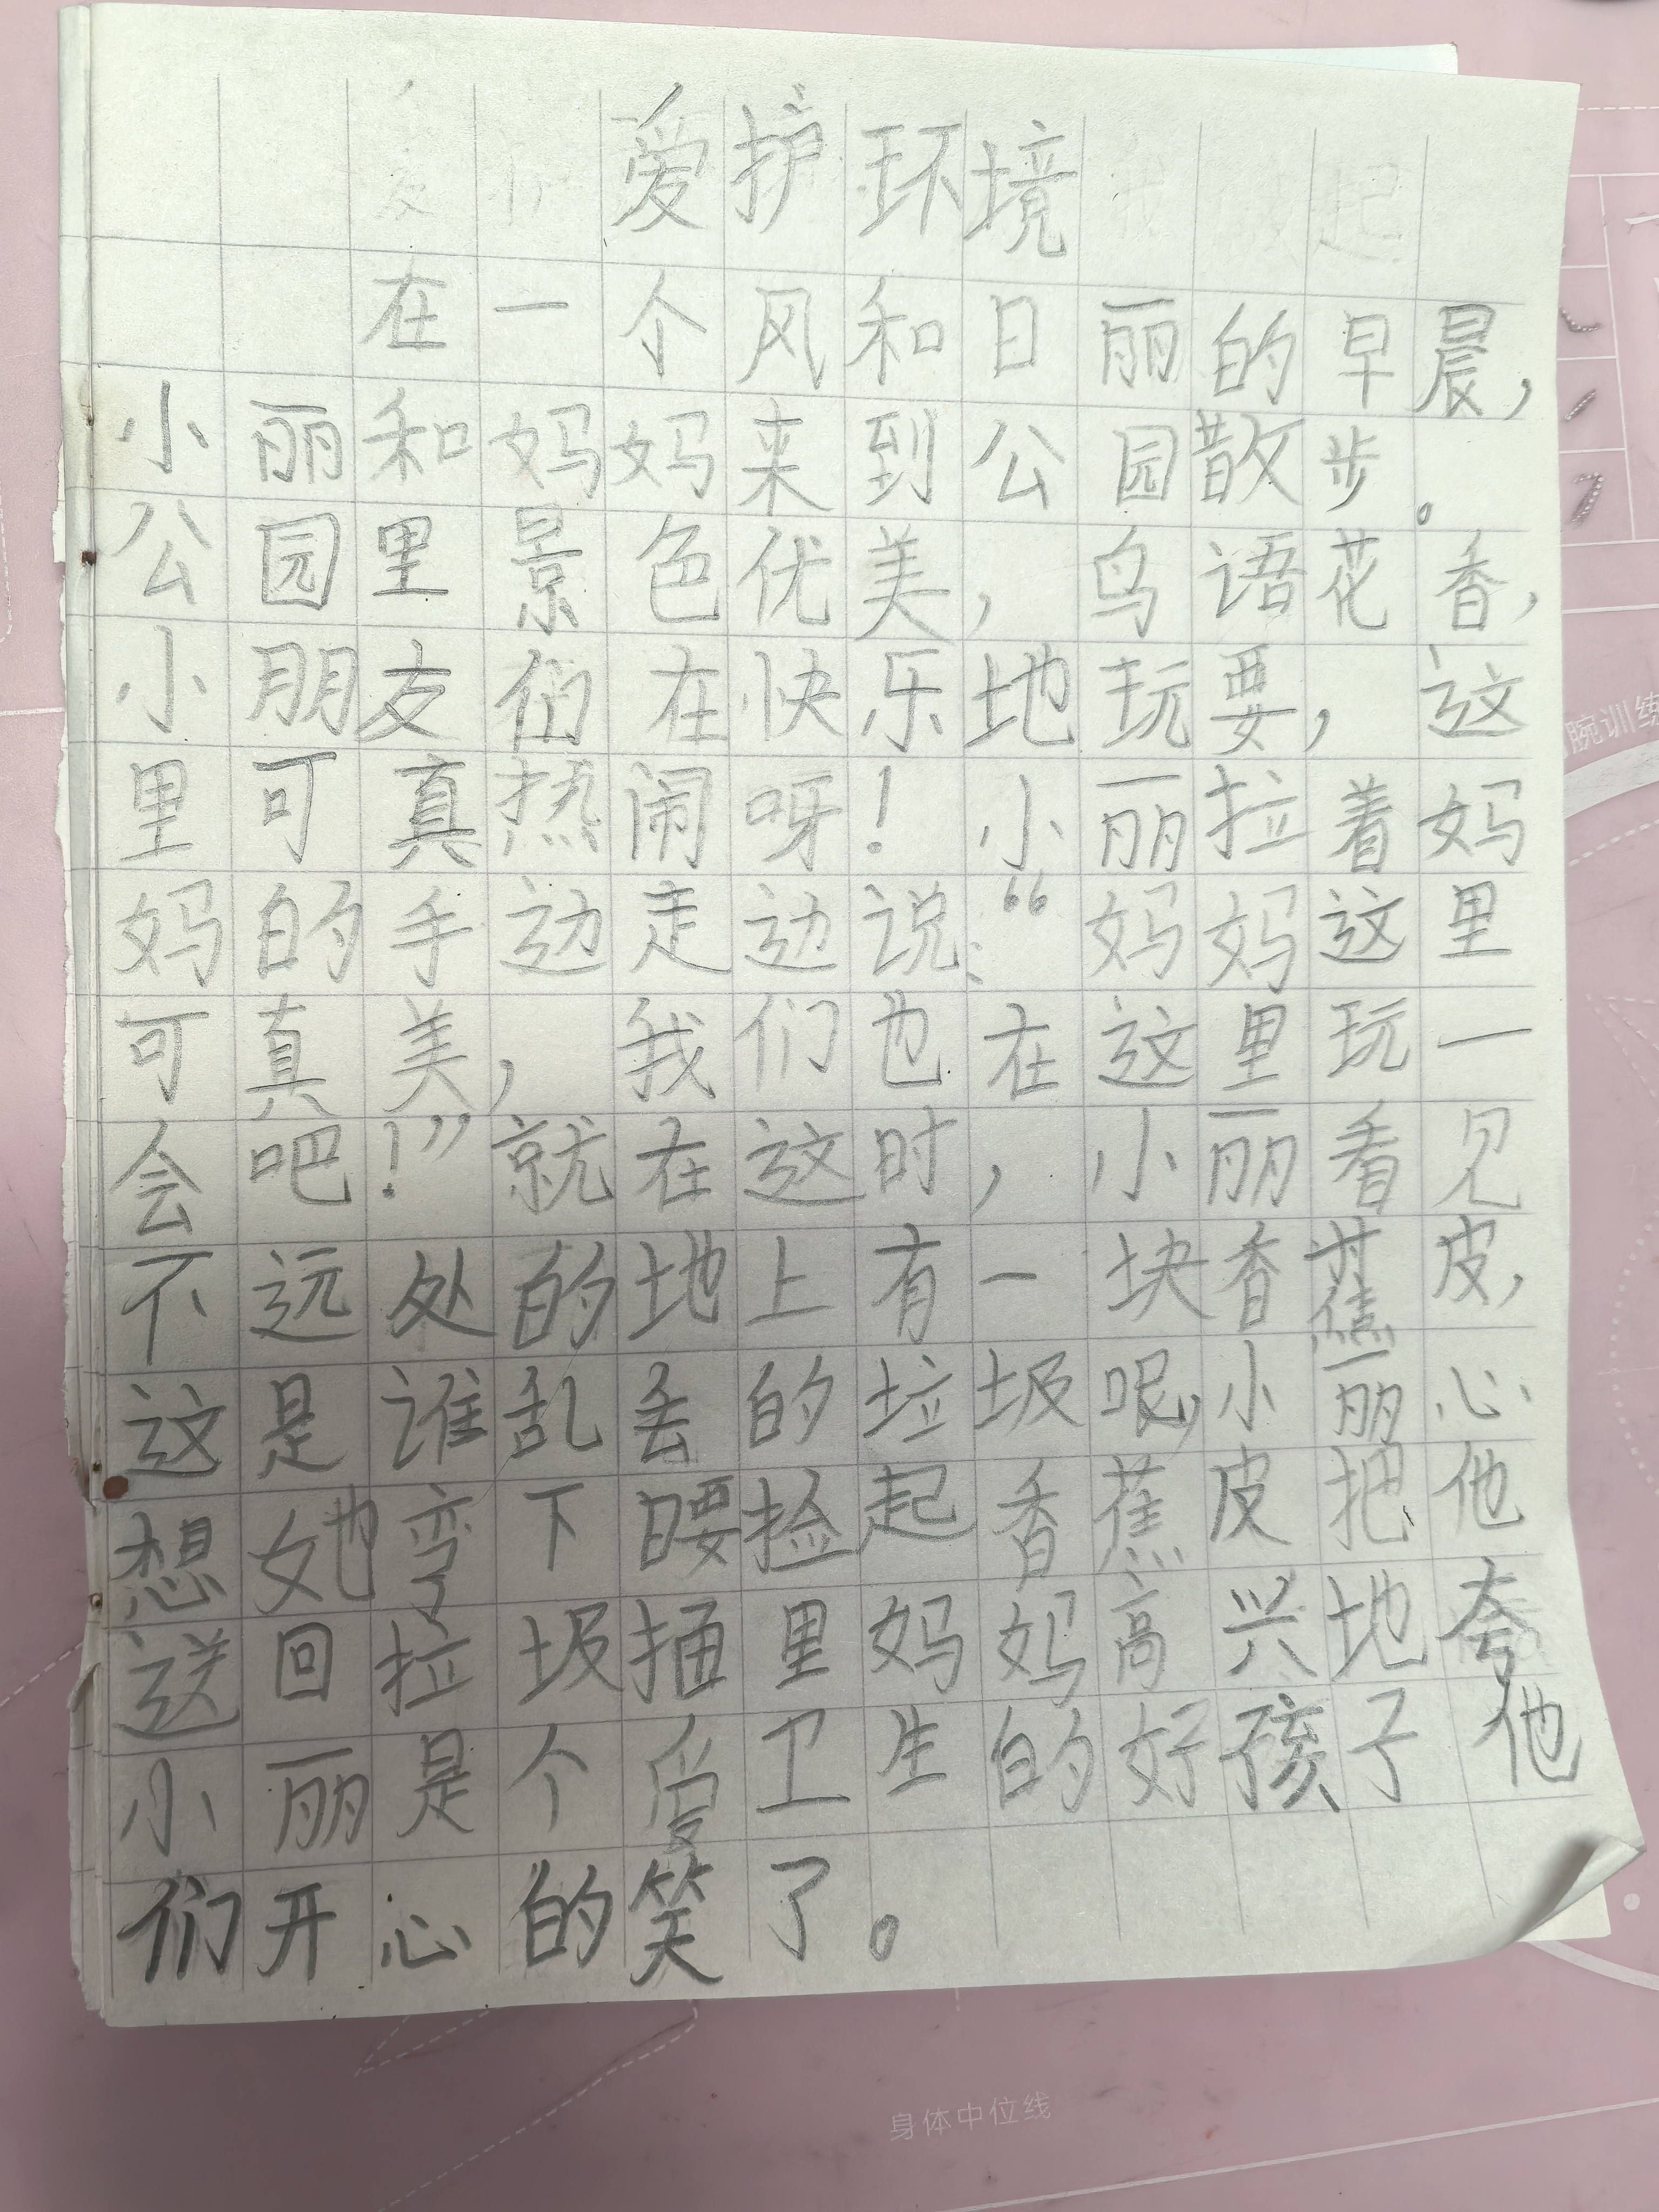 爱护环境
在一个风和日丽的早晨,
小丽和妈妈来到公园散步。
公园里景色优美,鸟语花香,
小朋友们在快乐地玩要,这
里可真热闹呀!小丽拉着妈
妈的手边走边说:“妈妈这里
可真美,我们也在这里玩一
会吧!”就在这时,小丽看见
不远处的地上有一块香蕉皮,
这是谁乱丢的垃圾呢,小丽心
想她弯下腰捡起香蕉皮把他
送回拉圾捅里妈妈高兴地夸
小丽是个爱卫生的好孩子他
们开心的笑了。
腕训练
身体中位线